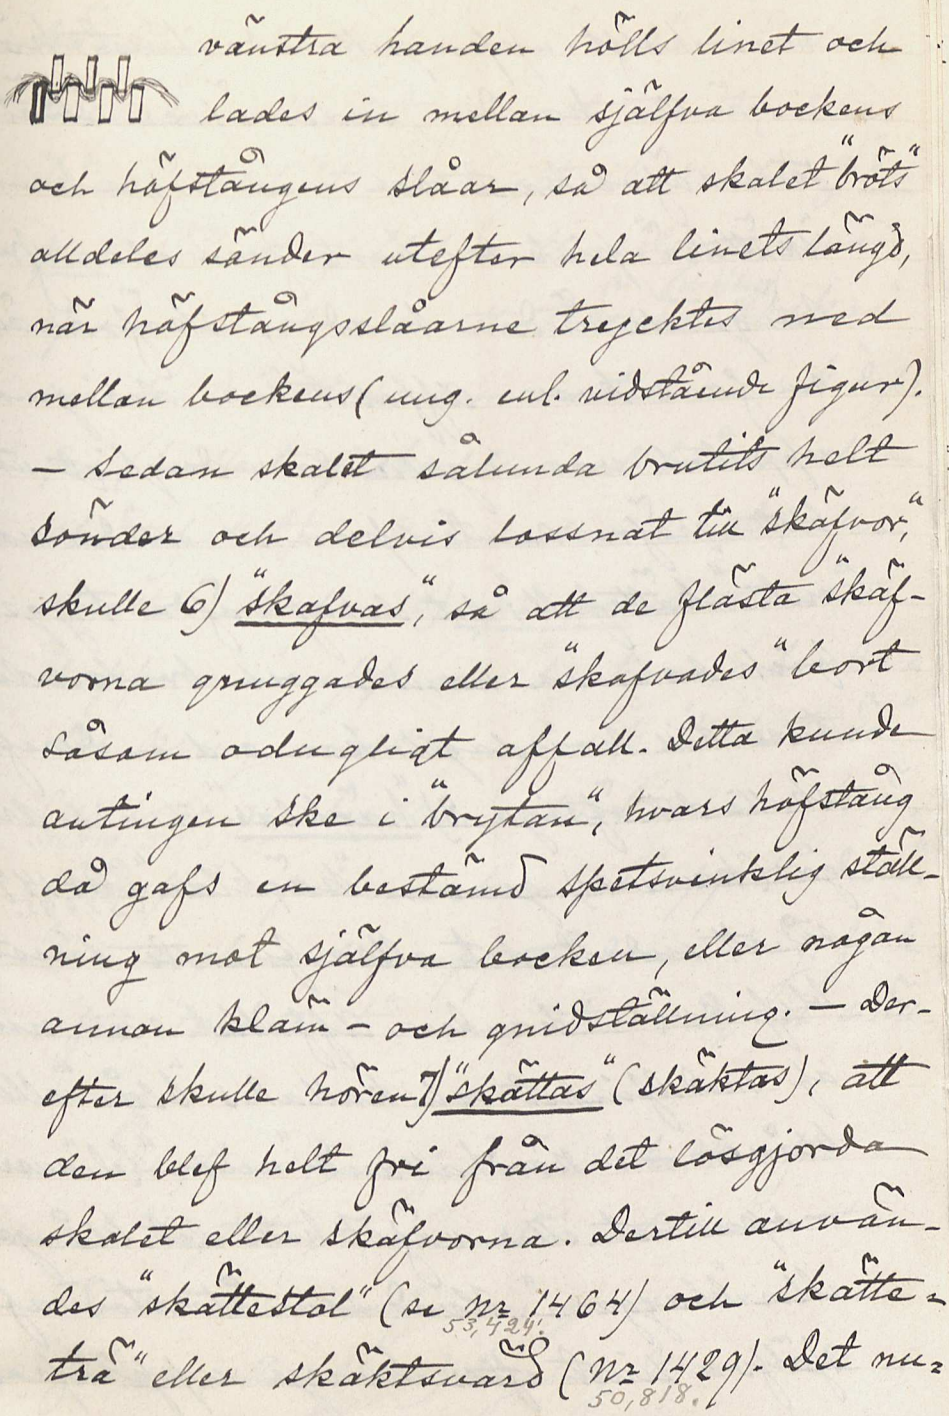 vänstra handen hölls linet och
lades in mellan själfva bockens
och häfstångens slåar, så att skalet "bröts"
alldeles sönder utefter hela linets längd,
när häfstångsslåarne trycktes ned
mellan bockens (ung. enl. vidstående figur).
– Sedan skalet sålunda brutits helt
sönder och delvis lossnat till "skäfvor",
skulle 6) "skafvas", så att de flästa "skäf-
vorna gnuggades eller "skafvades" bort
såsom odugligt affall. Detta kunde
antingen ske i "brytan", hvars häfstång
då gafs en bestämd spetsvinklig ställ-
ning mot själfva bocken, eller någon
annan kläm- och gnidställning. – Der-
efter skulle hören 7) "skättas" (skäktas), att
den blef helt fri från det lösgjorda
skalet eller skäfvorna. Dertill använ-
des "skättestol" (se Nr 1464) och "skätte-
53,424.
trä" eller skäktsvärd (Nr 1429). Det nu=
50,818.